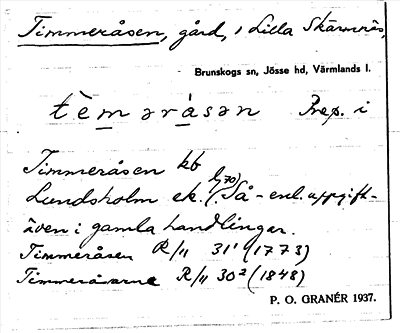 Timmeråsen, gård, i Lilla Skärmnäs,
Brunskogs sn, Jösse hd, Värmlands l.
tèmərásən Prep. i
Timmeråsen kb
Lundsholm ek. (bl 70) Så - enl. uppgift -
även i gamla handlingar.
Timmeråsen R/11 31¹ (1773)
Timmeråsarne R/11 30² (1848)
P. O. GRANÉR 1937.